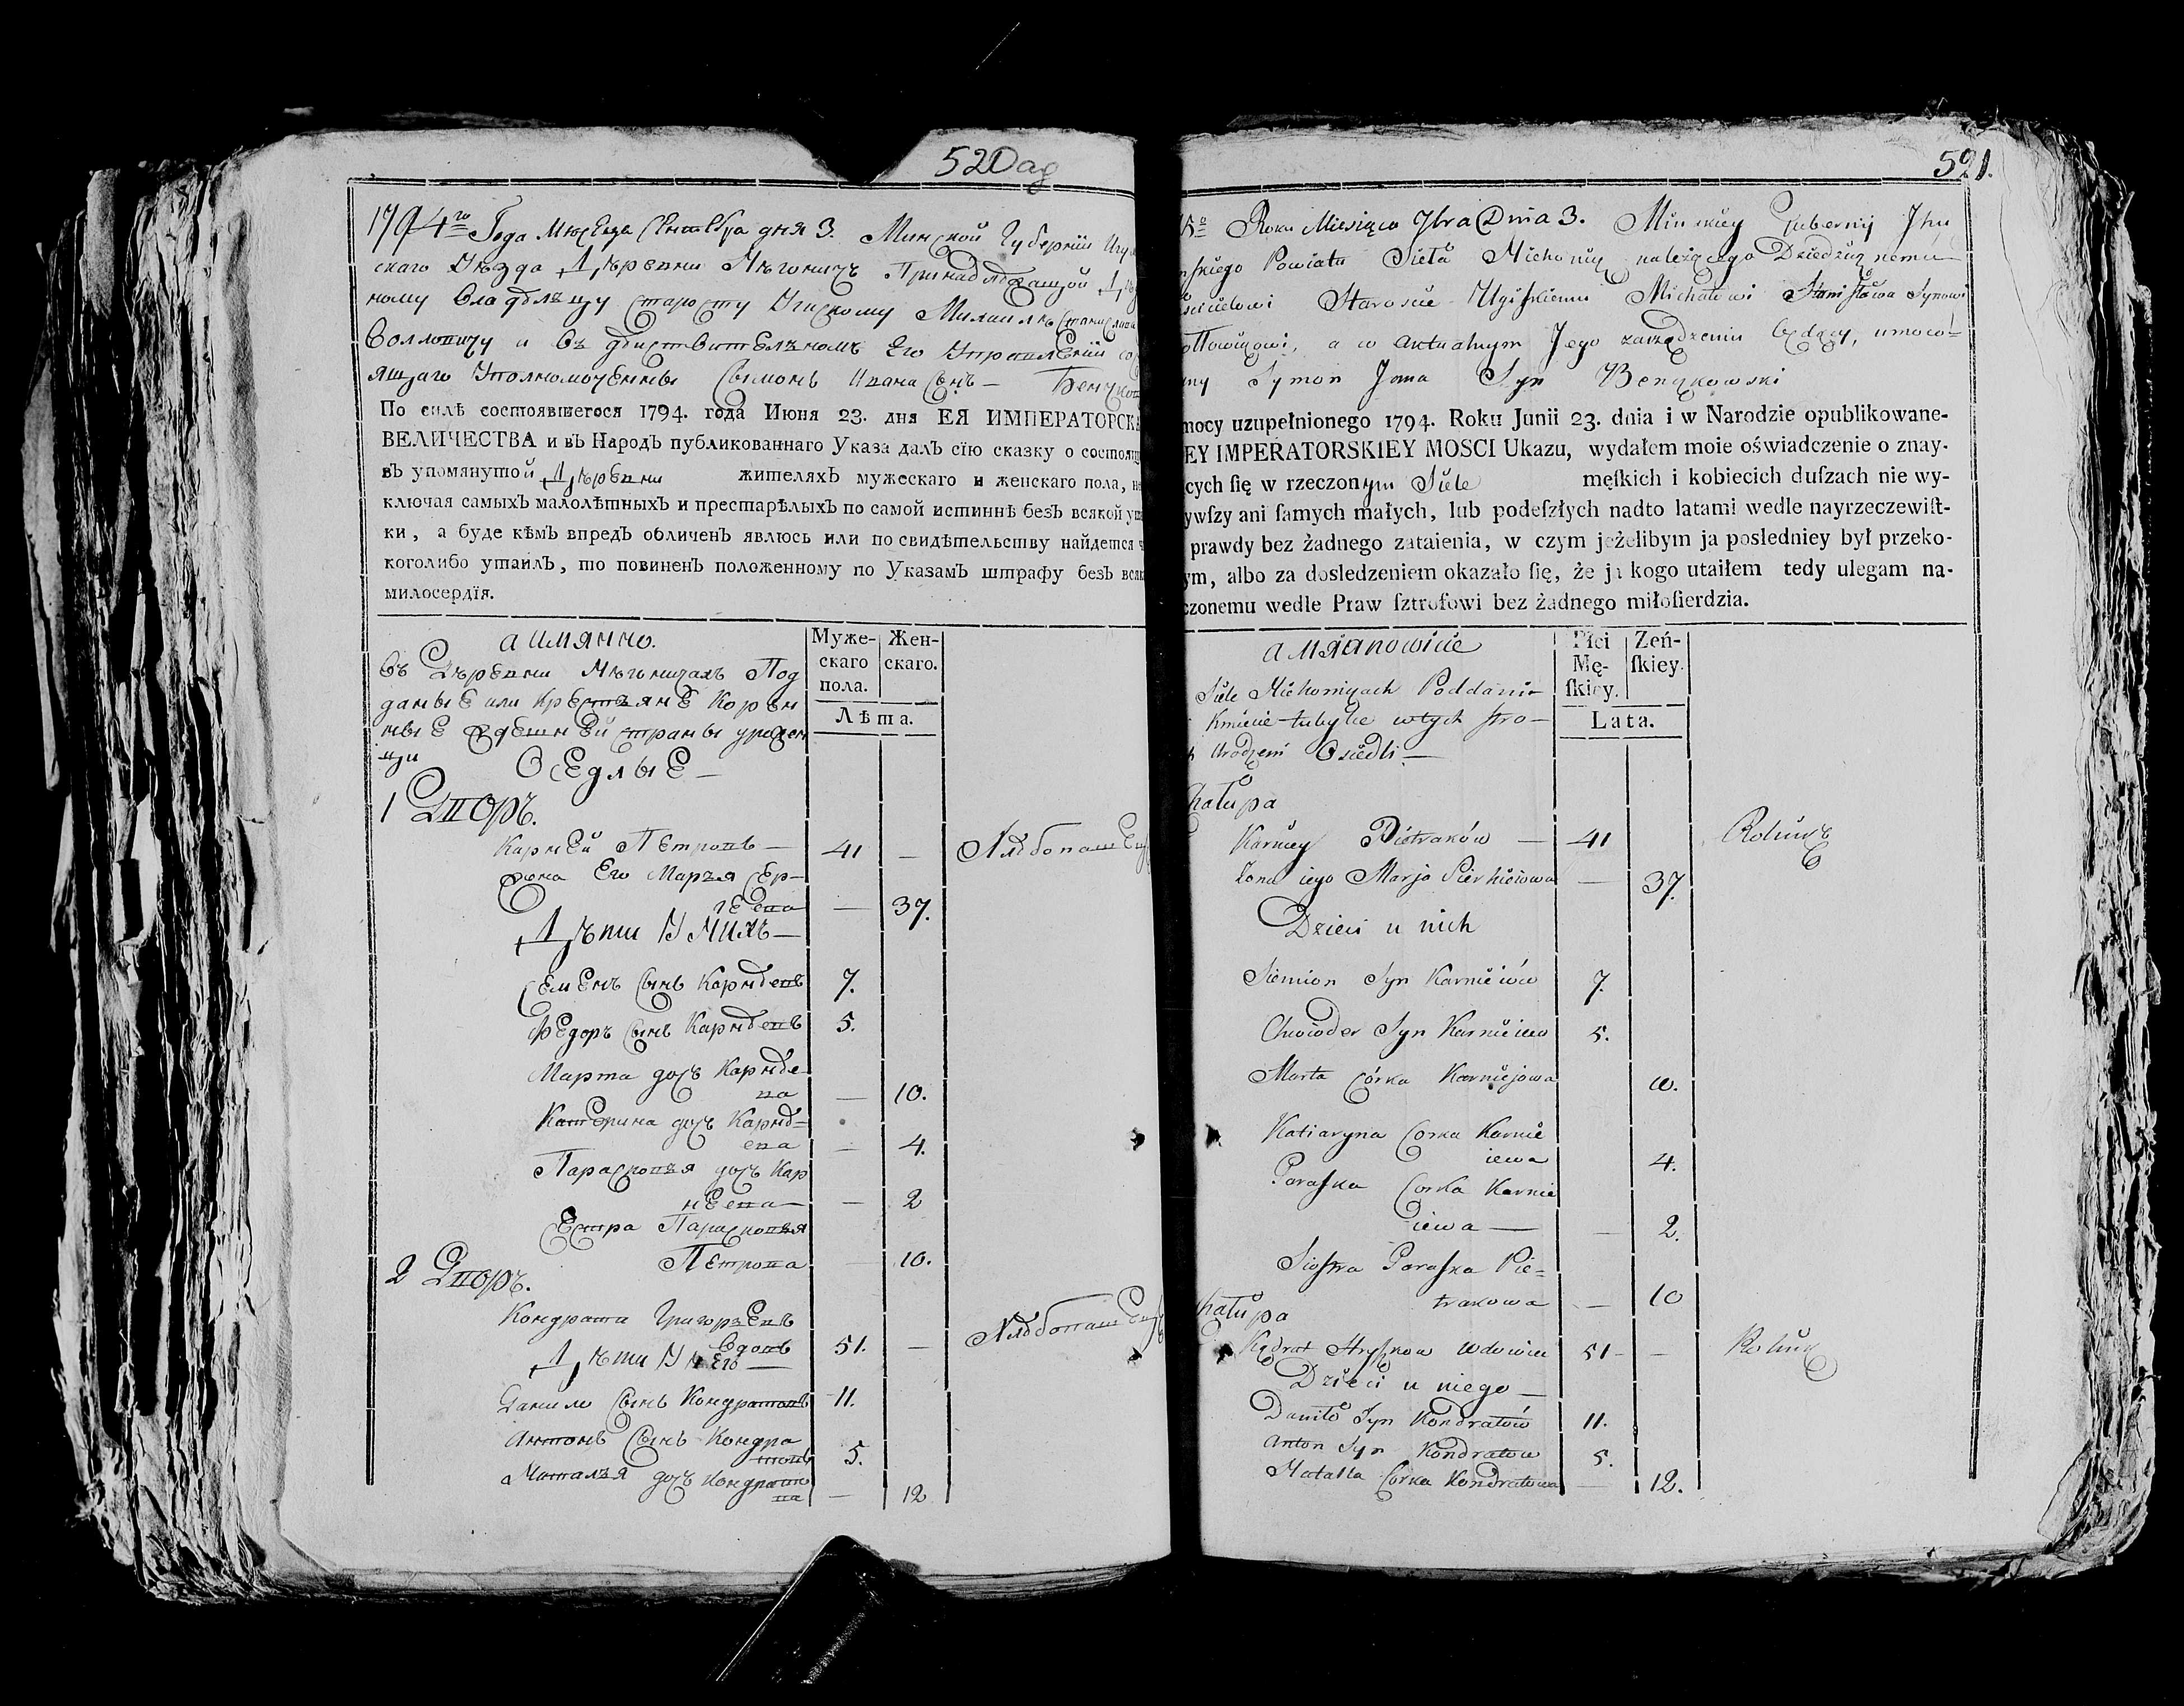 520 аg
1794го Года Мѣсеца Сентебра дня 3. Минской Губернїи Игу
скаго Уезда Дѣревни Мѣхоничъ Принадлѣжащой
ному Владѣлцу Старосту Угискому Михаилѣ Станислава
Воллошцу и въ дѣиствителномъ Его Управленїи со
ящаго Уполномоченны Сымонъ Ивана Сынъ —
По силѣ состоявшегося 1794. года Июня 23. дня ЕЯ ИМПЕРАТОРСКА
ВЕЛИЧЕСТВА и въ Народъ публикованнаго Указа далъ сїю сказку о состоящ
въ упомянутой Дѣревни жителяхъ мужескаго и женскаго пола, не
ключая самыхъ малолѣтныхъ и престарѣлыхъ по самой истиннѣ безъ всякой ута
ки, а буде кѣмъ впредъ обличенъ явлюсь или по свидѣтельству найдется ч
коголибо утаилъ, то повиненъ положенному по Указамъ штрафу безъ всяк
милосердїя.
а имянно.
Муже-
скаго
пола.
Жен-
скаго.
Лѣта.
Въ Дѣревни Мѣхничахъ Под
даные или крестъяне корен
ные здешней страны урожен
цы
Оседлые —
1 Дворъ.
Карней Петровъ — 41 — Хлѣбопашец
Жона Его Маръя Сер-
геева — 37.
Дѣти У Нихъ —
Семенъ Сынъ Карнѣевъ 7.
Федоръ Сынъ Карнѣевъ 5.
Марта дочъ Карнѣе
ва — 10.
Катерина дочъ Карнѣ=
ева — 4.
Парасковъя дочъ Кар
неева — — 2
Сестра Парасковъя
Петрова — 10.
2 Дворъ.
Кондрати Григоръевъ
Вдовъ 51. — Хлѣбопашец
Дѣти У Него —
Данило Сынъ Кондратовъ 11.
Антонъ Сынъ Кондра
товъ 5.
Наталъя дочъ Кондрато
ва — 12
521.
Roku Miesiąca 7bra Dnia 3. Minskiey Gubernij Ihu
skiego Powiatu Sieła Michonicz należącego Dziedzicznemu
Staroscie Ugiskiemu Michałowi Stanisława Synowi
ołłowiczowi, a w aktualnym Jego zarządzeniu będący, umoco-
ny Symon Jana Syn Benczkowski
mocy uzupełnionego 1794. Roku Junii 23. dnia i w Narodzie opublikowane-
EY IMPERATORSKIEY MOSCI Ukazu, wydałem moie oświadczenie o znay-
cych ſię w rzeczonym Siele męſkich i kobiecich duſzach nie wy-
ywſzy ani ſamych małych, lub podeſzłych nadto latami wedle nayrzeczewiſt-
prawdy bez żadnego zataienia, w czym jeżelibym ja posledniey był przeko-
ym, albo za dosledzeniem okazało ſię, że ja kogo utaiłem tedy ulegam na-
czonemu wedle Praw ſztrofowi bez żadnego miłoſierdzia.
a mianowicie
Płci
Mę-
ſkiey.
Zeń-
ſkiey.
Lata.
Siele Michonigach Poddani-
Kmiecie tubylce w tych stro-
Urodzeni Osiedli —
hałupa
Karniey Pietraków — 41 Rolnik
Zona iego Marja Sierhieiowa — 37.
Dzieci u nich
Siemion Syn Karnieiów 7.
Chwioder Syn Karnieiew 5.
Marta Córka Karniejowa 10.
Katiaryna Corka Karnie
iewa 4.
Paraſka Corka Karnie
iewa — — 2.
Siostra Paraſka Pie=
trakowa — 10
hałupa
Kądrat Hryſzkow Wdowiec 51 — Rolnik
Dzieci u niego —
Daniło Syn Kondratów 11.
Anton Syn Kondratow 5.
Natalla Corka Kondratowa — 12.